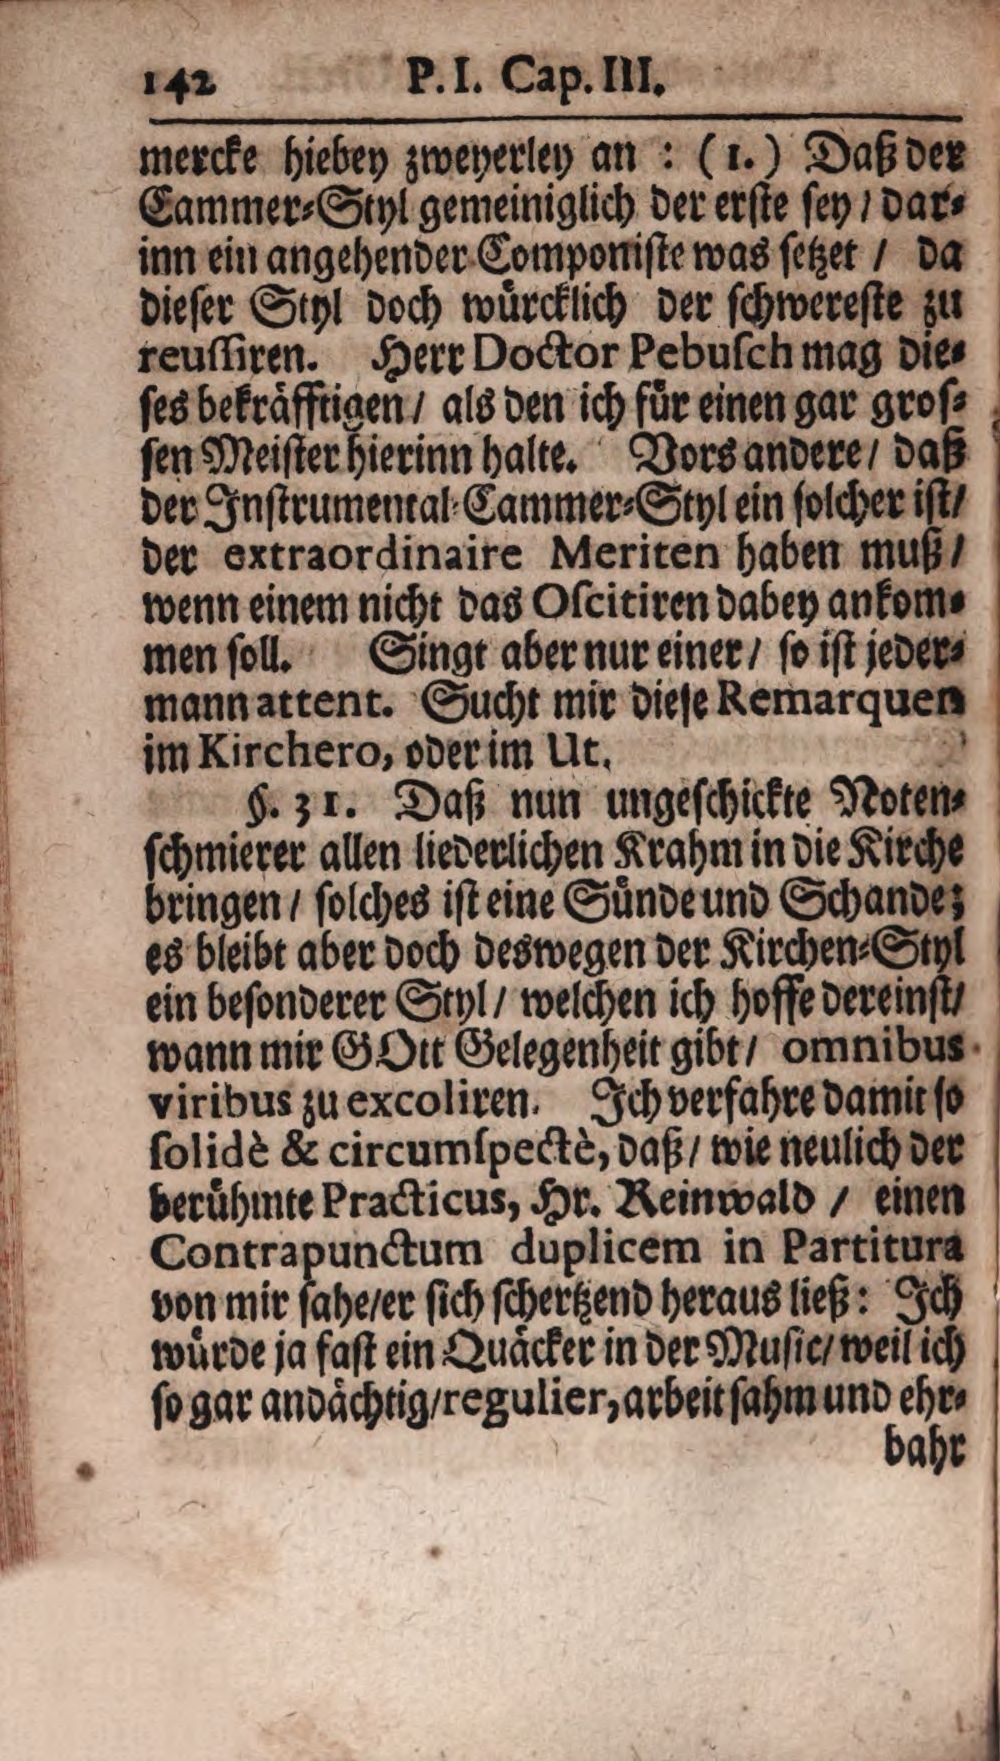 142 P. I. Cap. III.
mercke hiebey zweyerley an : (1.) Daß der
Cammer-Styl gemeiniglich der erste sey / dar-
inn ein angehender Componiste was setzet / da
dieser Styl doch würcklich der schwereste zu
reussiren. Herr Doctor Pebusch mag die-
ses bekräfftigen / als den ich für einen gar gros-
sen Meister hierinn halte. Vors andere / daß
der Instrumental-Cammer-Styl ein solcher ist /
der extraordinaire Meriten haben muß /
wenn einem nicht das Oscitiren dabey ankom-
men soll. Singt aber nur einer / so ist jeder-
mann attent. Sucht mir diese Remarquen
im Kirchero, oder im Ut.
§. 31. Daß nun ungeschickte Noten-
schmierer allen liederlichen Krahm in die Kirche
bringen / solches ist eine Sünde und Schande;
es bleibt aber doch deswegen der Kirchen-Styl
ein besonderer Styl / welchen ich hoffe dereinst /
wann mir GOtt Gelegenheit gibt / omnibus
viribus zu excoliren. Ich verfahre damit so
solidè & circumspectè, daß / wie neulich der
berühmte Practicus, Hr. Reinwald / einen
Contrapunctum duplicem in Partitura
von mir sahe / er sich schertzend heraus ließ: Ich
würde ja fast ein Quäcker in der Music / weil ich
so gar andächtig / regulier, arbeitsahm und ehr-
bahr